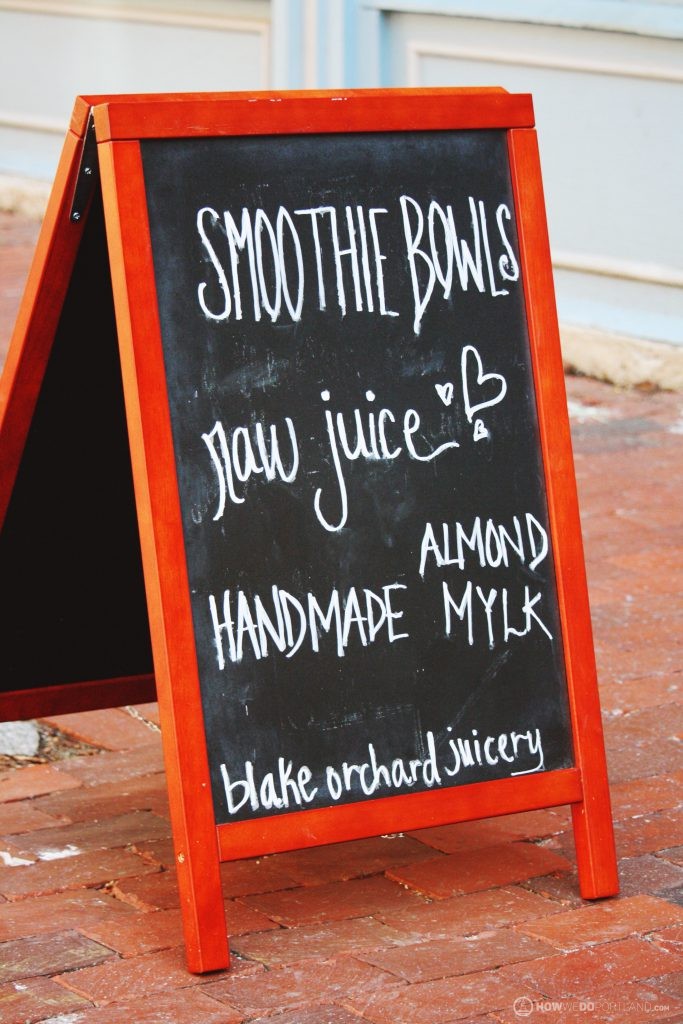 SMOOTHIE BOWLS
raw juice
ALMOND
HANDMADE MYLK
blake orchard juicery
HOWWEDOPORTLAND.COM